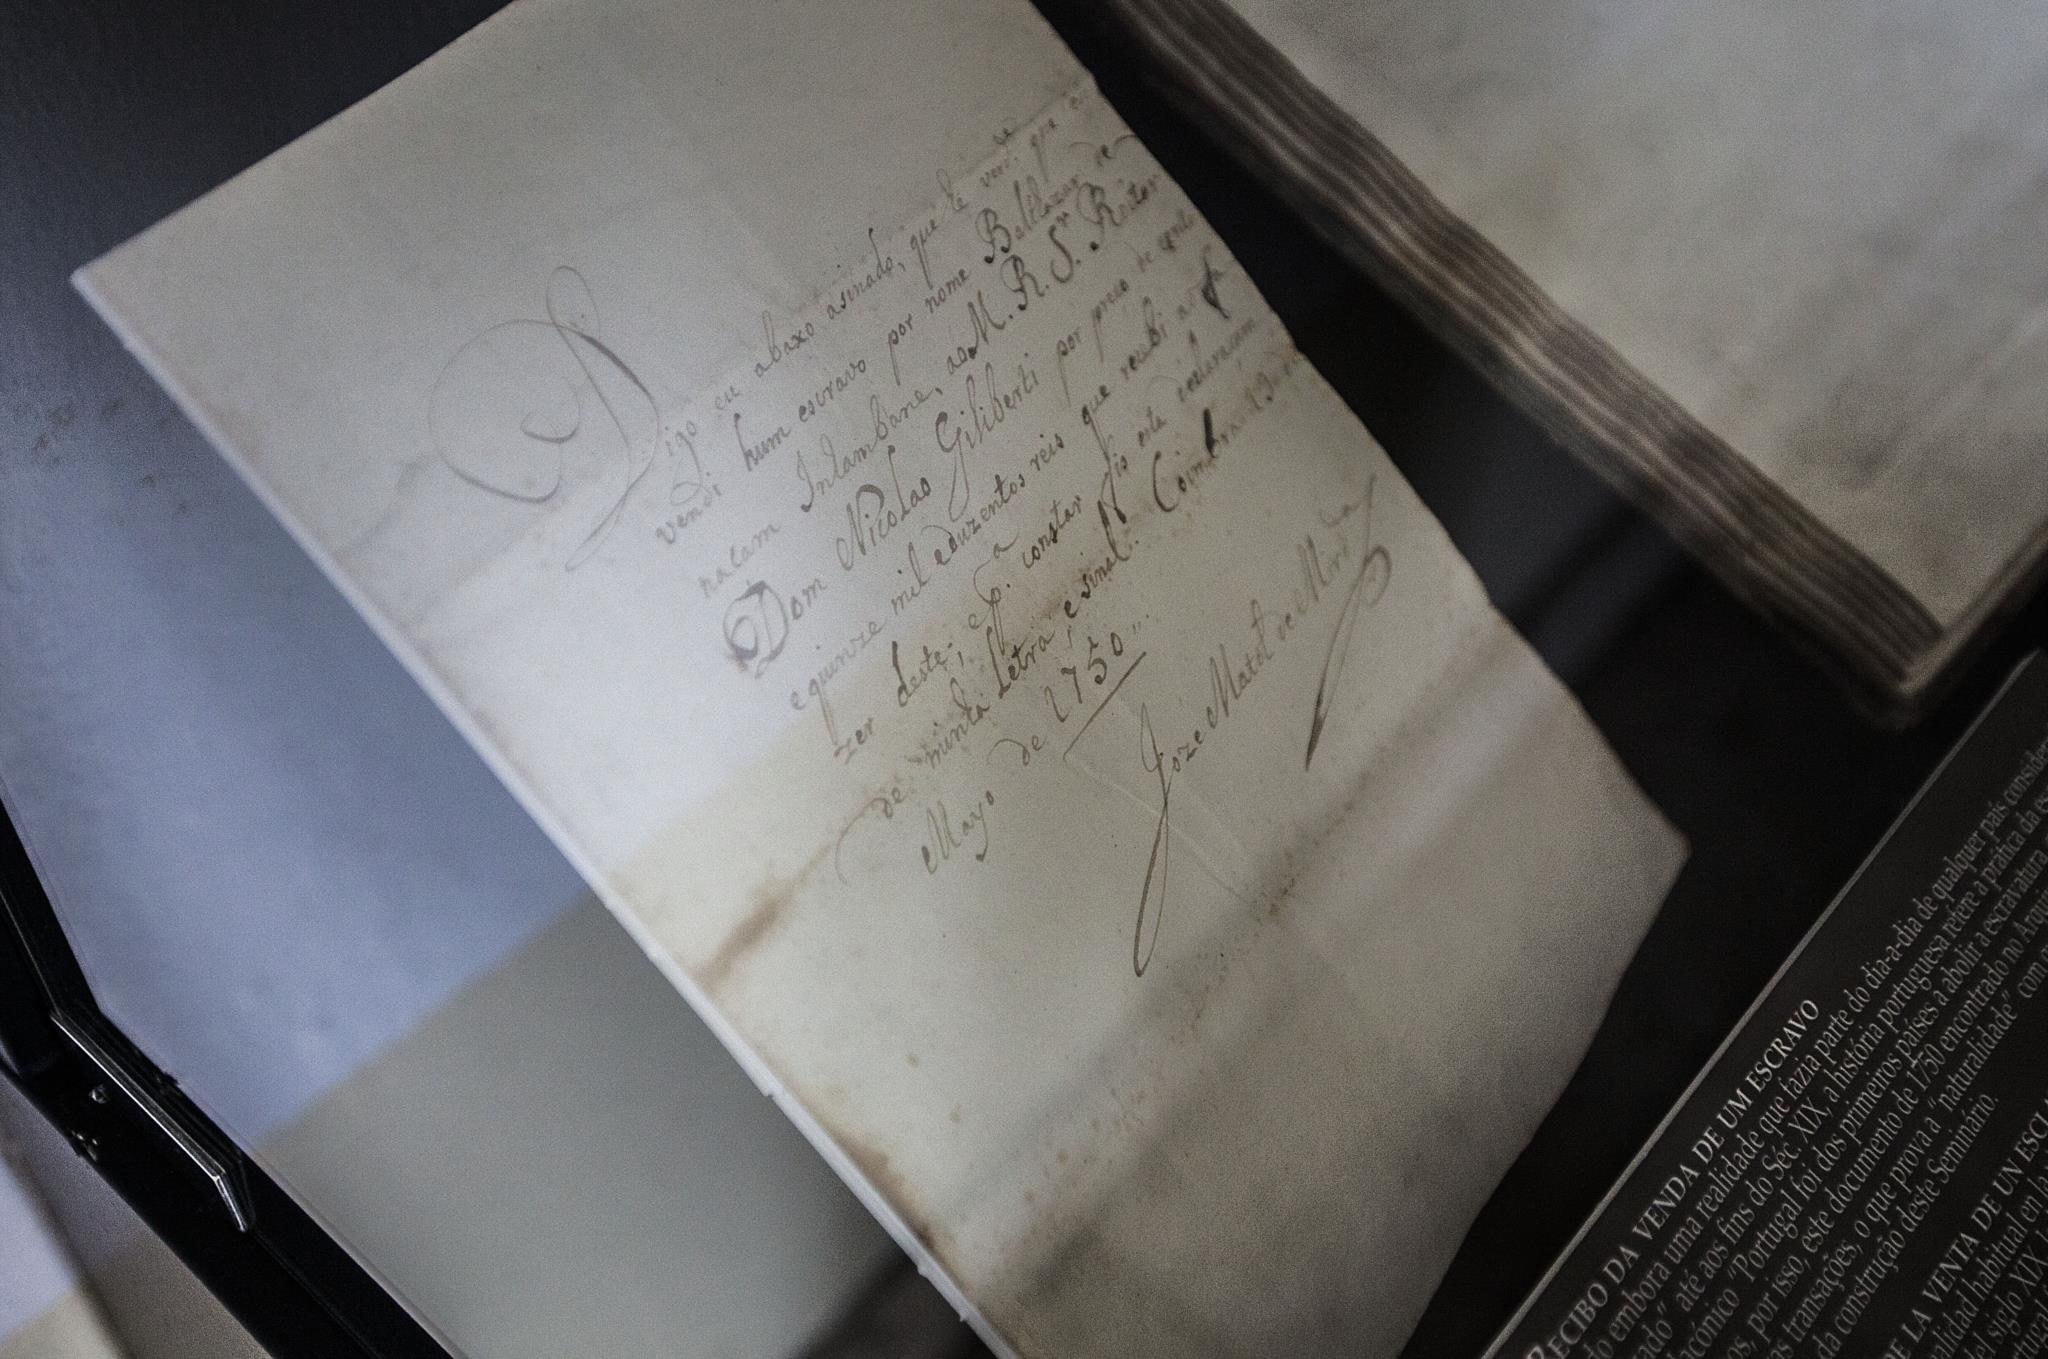 Digo eu abaxo asinado, que he verd.de que
vendi hum escravo por nome Balthazar de
nacam Inhambane, ao M. R. S.r Reitor
Dom Nicolao Giliberti por preso de cento
e quinze mil eduzentos reis que recibi
zer deste; e p.a constar fis esta declaracam
de minha Letra, e sinal. Coimbra 13 de
Mayo de 1750
Joze Mat.l de Mirda
RECIBO DA VENDA DE UM ESCRAVO
do embora uma realidade que fazia parte do dia-a-dia de qualquer país
ado" até aos fins do Séc. XIX, a história portuguesa refere a prática da
lacónico "Portugal foi dos primeiros países a abolir a escravatura
os, por isso, este documento de 1750 encontrado no
as transações, o que prova a "naturalidade" com
da construção deste Seminário.
DE LA VENTA DE UN
alidad habitual en la
del siglo XIX